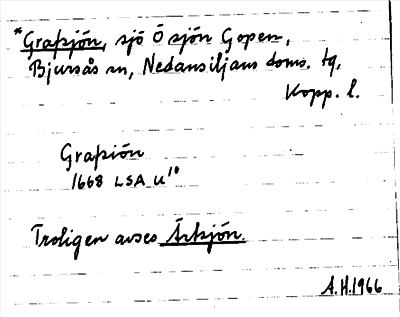 *Graksjön, sjö Ö sjön Gopen,
Bjursås sn, Nedansiljans doms. tg,
Kopp. l.
Graksiön
1668 LSA U¹⁰
Troligen avses Årksjön.
A.H. 1966